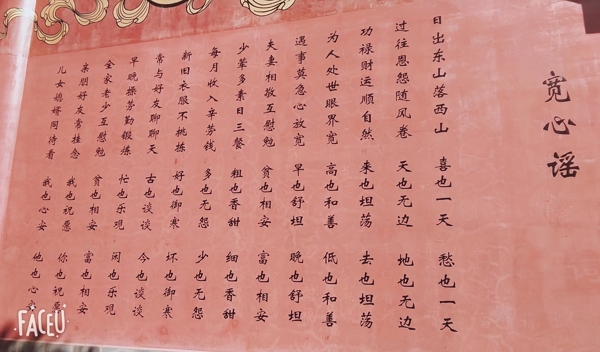 宽心谣
日出东山落西山 喜也一天 愁也一天
过往恩怨随风卷 天也无边 地也无边
功禄财运顺自然 来也坦荡 去也坦荡
为人处世眼界宽 高也和善 低也和善
遇事莫急心放宽 早也舒坦 晚也舒坦
夫妻相敬互慰勉 贫也相安 富也相安
少荤多素日三餐 粗也香甜 细也香甜
每月收入辛劳钱 多也无怨 少也无怨
新旧衣服不挑拣 好也御寒 坏也御寒
常与好友聊聊天 古也谈谈 今也谈谈
早晚操劳勤锻炼 忙也乐观 闲也乐观
全家老少互慰勉 贫也相安 富也相安
亲朋好友常挂念 我也祝愿 你也祝愿
儿女媳婿同待看 我也心安 他也心安
FACEU